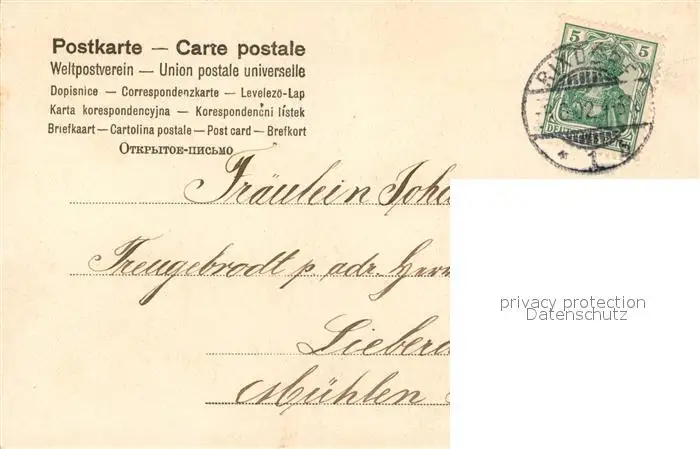 Postkarte — Carte postale
Weltpostverein — Union postale universelle
Dopisnice — Correspondenzkarte — Levelezö-Lap
Karta korespondencyjna — Korespondenčni lístek
Briefkaart — Cartolina postale — Post card — Brefkort
Открытое-письмо
5 5
1
Fräulein
p. adr.
Mühlen
privacy protection
Datenschutz